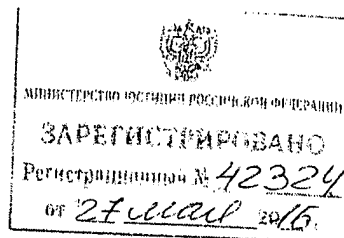 МИНИСТЕРСТВО ЮСТИЦИИ РОССИЙСКОЙ ФЕДЕРАЦИИ
ЗАРЕГИСТРИРОВАНО
Регистрационный № 42324
от "27 мая 2016.